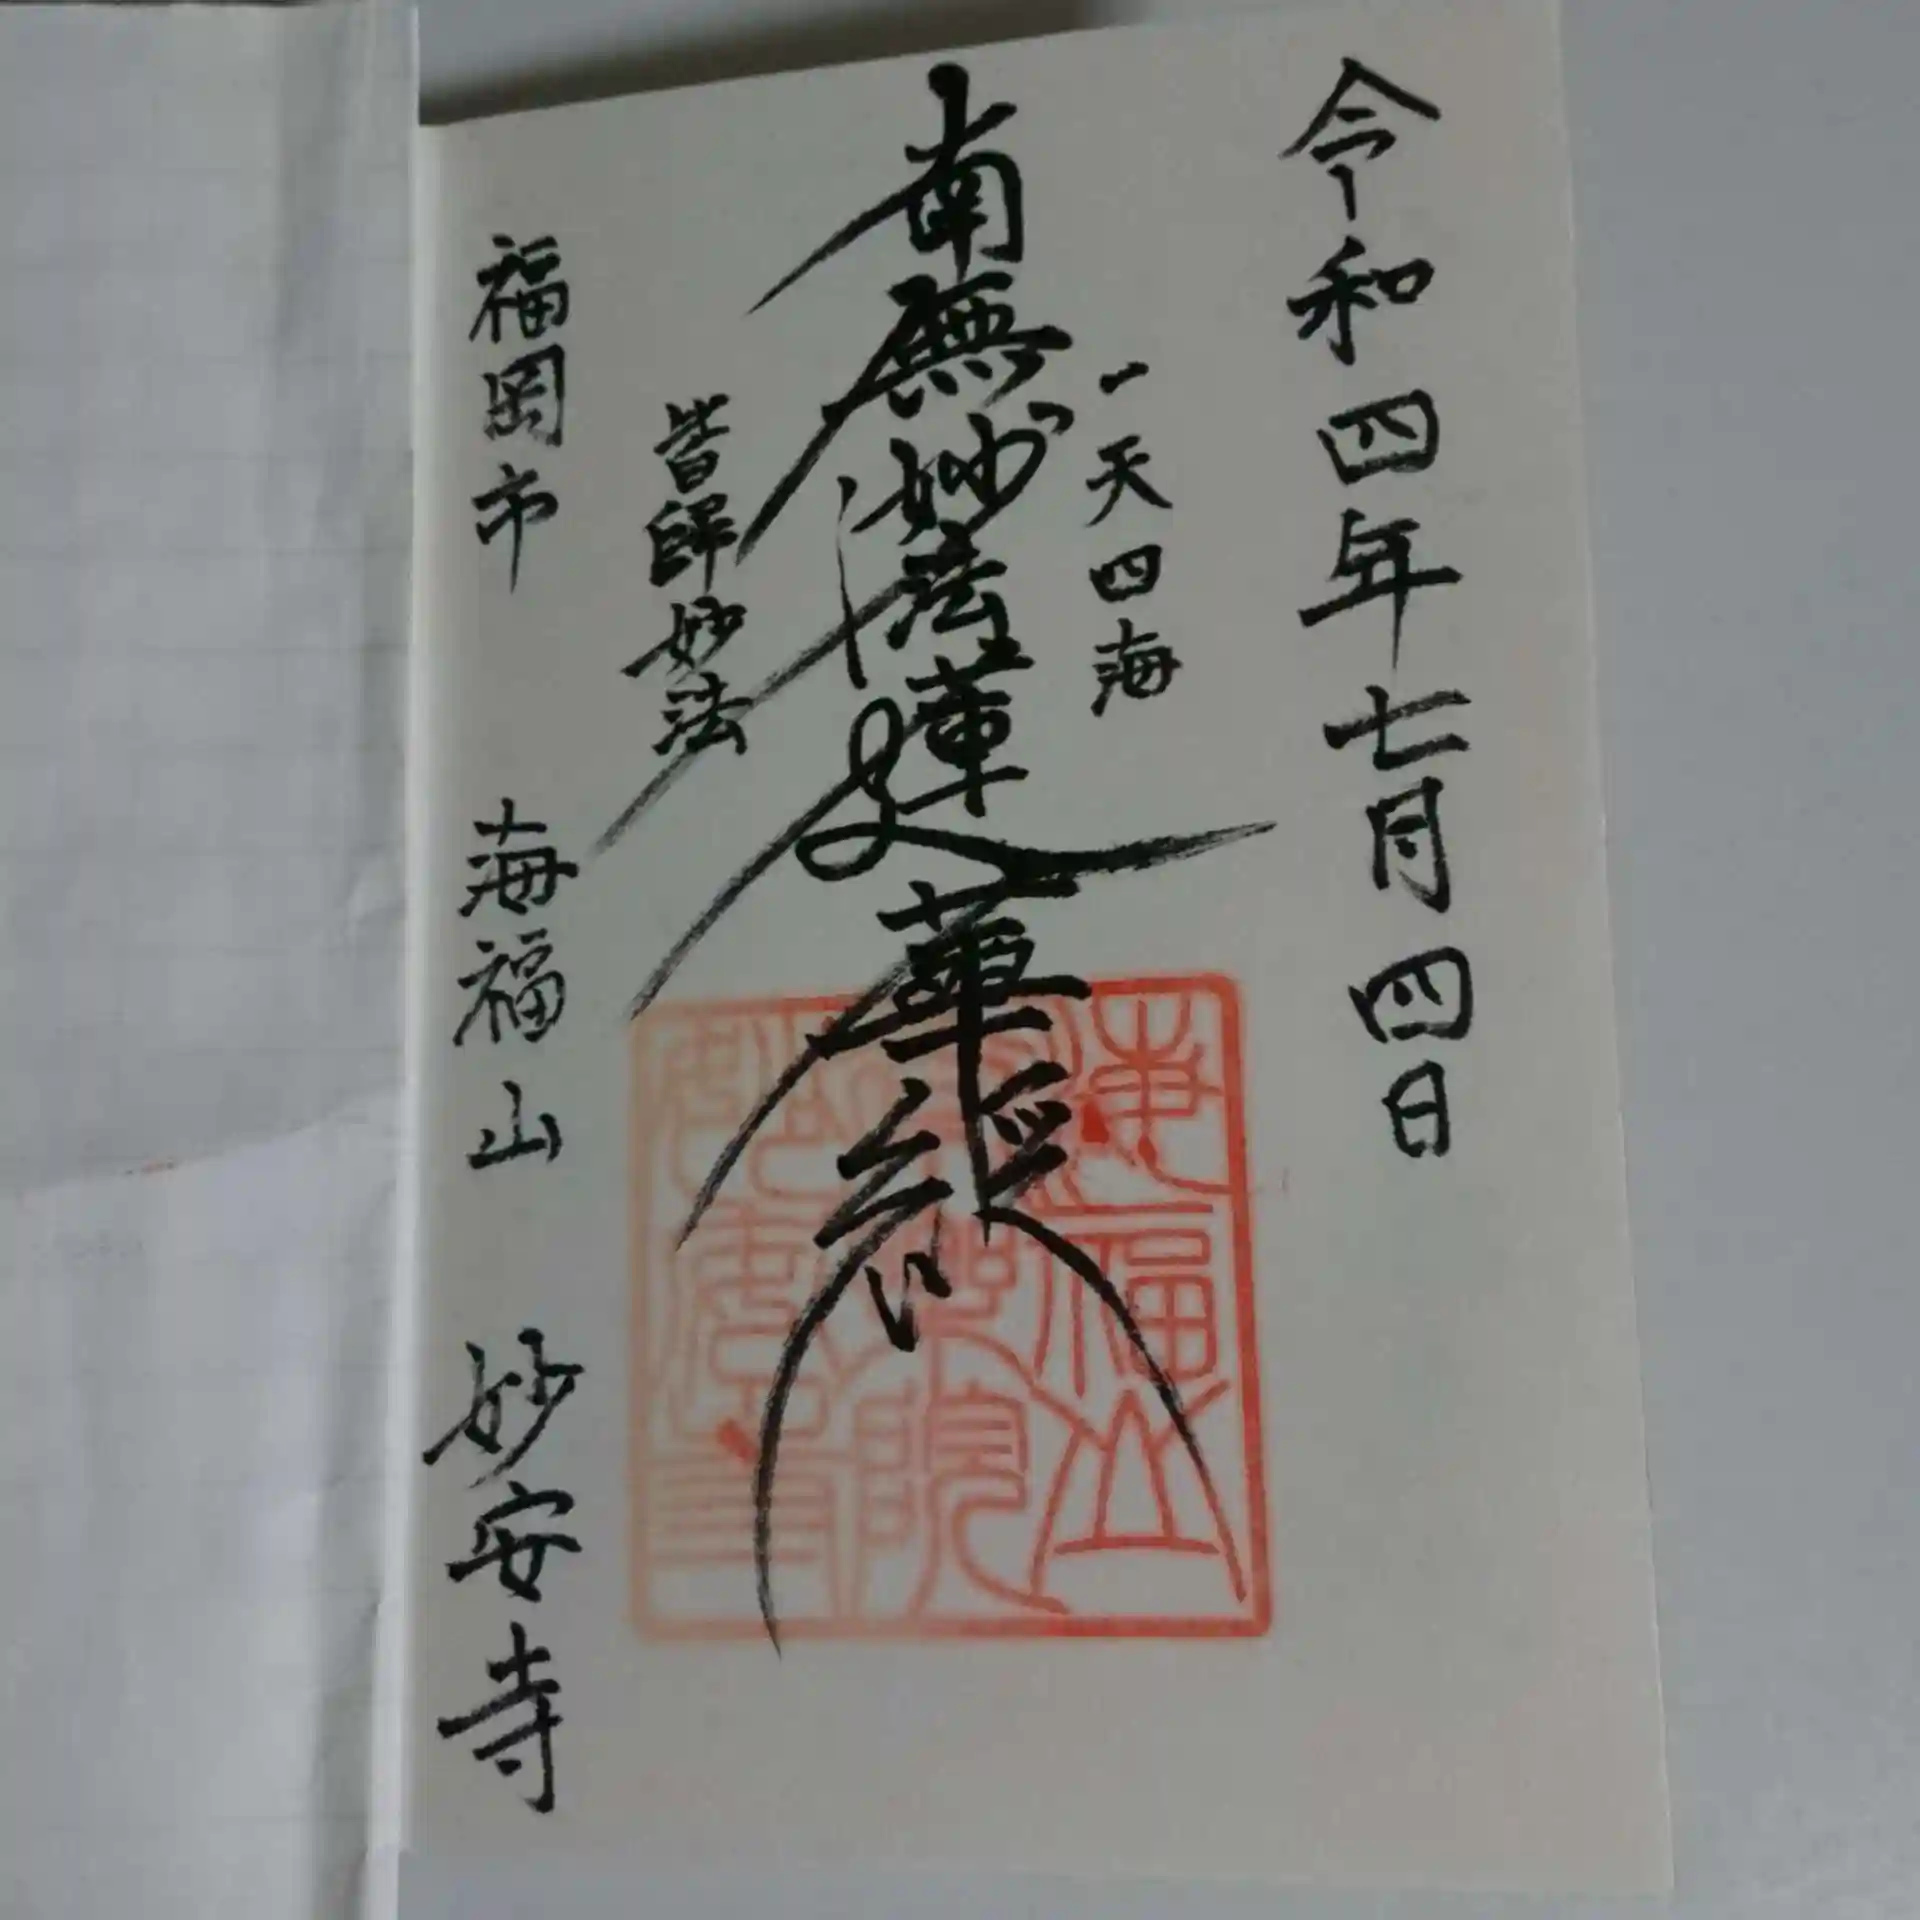 令和四年七月四日
一天四海
南無妙法蓮華経
皆歸妙法
福岡市 海福山 妙安寺
海福山
院